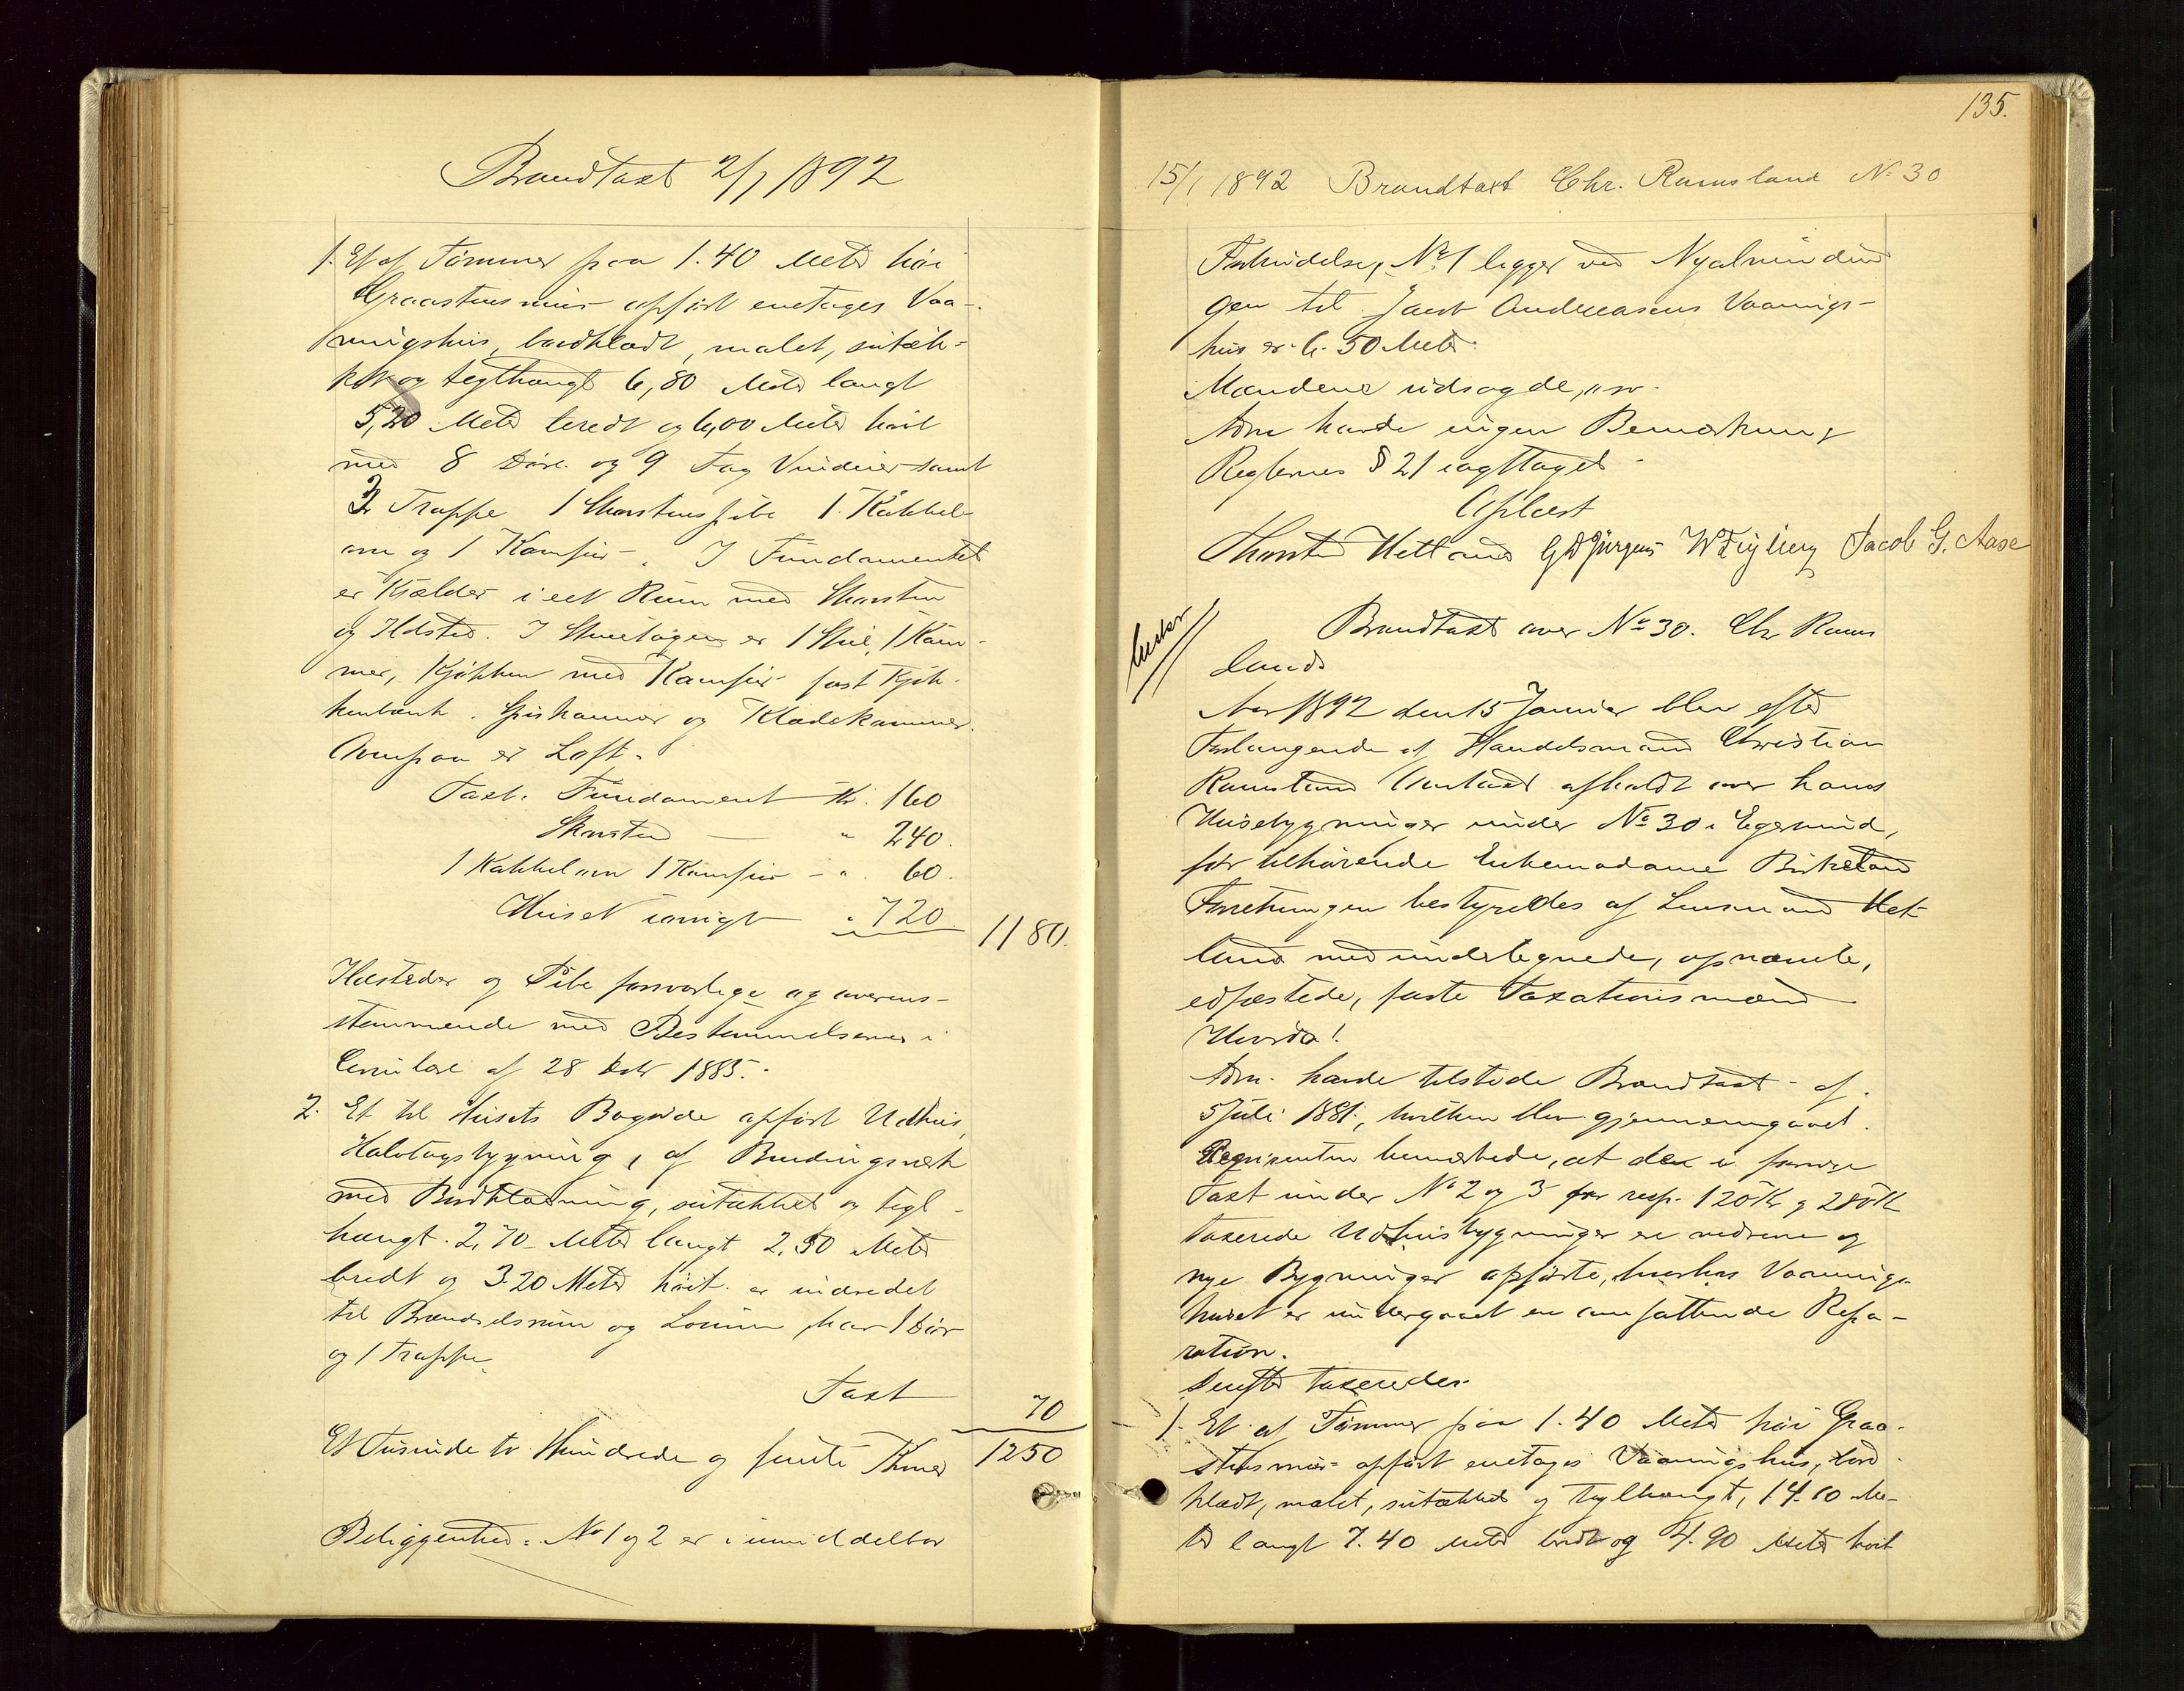 Brandtaxt 2/1 1892
1. Et af Tømmer paa 1.40 Meter høi
Graastensmur opført enetages Vaa-
ningshus, bordklædt, malet, sutæk-
ket og teglhængt 6,80 Meter langt
5,20 Meter bredt og 6,00 Meter høit
med 8 Døre og 9 Fag Vinduer samt
3 Trappe 1 Skorstenspibe 1 Kakkel-
ovn og 1 Komfur. I Fundamentet
er Kjælder i eet Rum med Skorsten
og Ildsted. I Stueetagen er 1 Stue, 1 Kam-
mer, Kjøkken med Komfur fast Kjøk-
kenbænk, Spiskammer og Klædekammer.
Ovenpaa er Loft.
Taxt: Fundament Kr. 160
Skorsten — " 240.
1 Kakkelovn 1 Komfur - " 60.
Huset iøvrigt " 720 1180.
Ildsteder og Pibe forsvarlige og overens-
stemmende med Bestemmelserne i
Cirkulære af 28 1885.
2. Et til Husets Bagside opført Udhus,
Halvtagsbygning, af Bindingsværk
med Bordklædning, sutækket og tegl-
hængt. 2,70 Meter langt 2,50 Meter
bredt og 3.20 Meter høit er indredet
til Brændselsrum og Lorum har 1 Dør
og 1 Trappe.
Taxt 70
Et Tusinde to Hundrede og femti Kroner 1250
Beliggenhed: No 1 og 2 er i umiddelbar
135.
15/1 1892 Brandtaxt Chr. Ramsland No 30
Forbindelse, No 1 ligger ved Nyalmindin
gen til Jacob Andreasens Vaanings-
hus er 6.50 Meter.
Mændene udsagde,
Adm havde ingen Bemærkning
Reglernes § 21 iagttaget
Oplæst
Hetland Jacob G. Aase
Brandtaxt over No 30. Chr Rams
lands
Aar 1892 den 15 Januar blev efter
Forlangende af Handelsmand Christian
Ramsland afholdt over hans
Husebygninger under No 30 i Egersund,
før tilhørende Enkemadame Birkeland
Forretningen bestyredes af Lensmand Het-
land med undertegnede, opnævnte,
edfæstede, faste Taxationsmænd
Hvorda!
Adm. havde tilstede Brandtaxt af
5 Juli 1881, hvilken blev gjennemgaaet.
Reqvirenten bemærkede, at de i forrige
Taxt under No 2 og 3 for resp. 120 Kr og 280 Kr
taxerede Udhusbygninger ere nedrevne og
nye Bygninger opførte, hvorhos Vaanings
huset er undergaaet en omfattende Repa-
ration.
Derefter taxeredes
1. Et af Tømmer paa 1.40 Meter høi Graa-
stensmur opført enetages Vaaningshus, bord
klædt, malet, sutækket og teglhængt, 14.10 Me-
ter langt 7.40 Meter bredt og 4.90 Meter høit